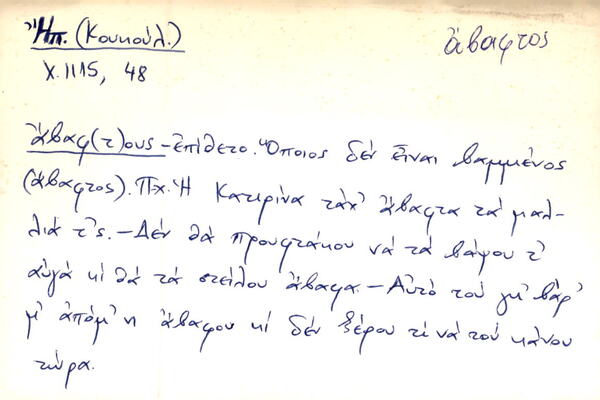 Ἤπ. (Κουκούλ.)
ἄβαφτος
Χ. 1115, 48
Ἄβαφ(τ)ους - ἐπίθετο. Ὅποιος δέν εἶναι βαμμένος
(ἄβαφτος). Π.χ. Ἡ Κατερίνα τἄχ' ἄβαφτα τά μαλ-
λιά τ'ς. - Δέν θά προυφτάκου νά τά βάψου τ'
αὐγά κί θά τά στείλου ἄβαφα. - Αὐτό τού
μ' ἀπόμ'νη ἄβαφου κί δέν ξέρου τί νά τού κάνου
τώρα.